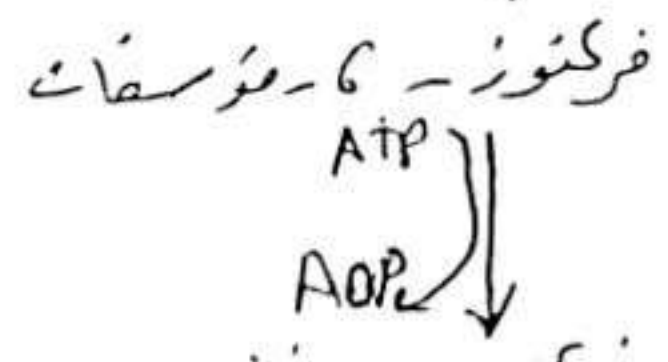 فركتوز - 6 - فوسفات
ATP
ADP